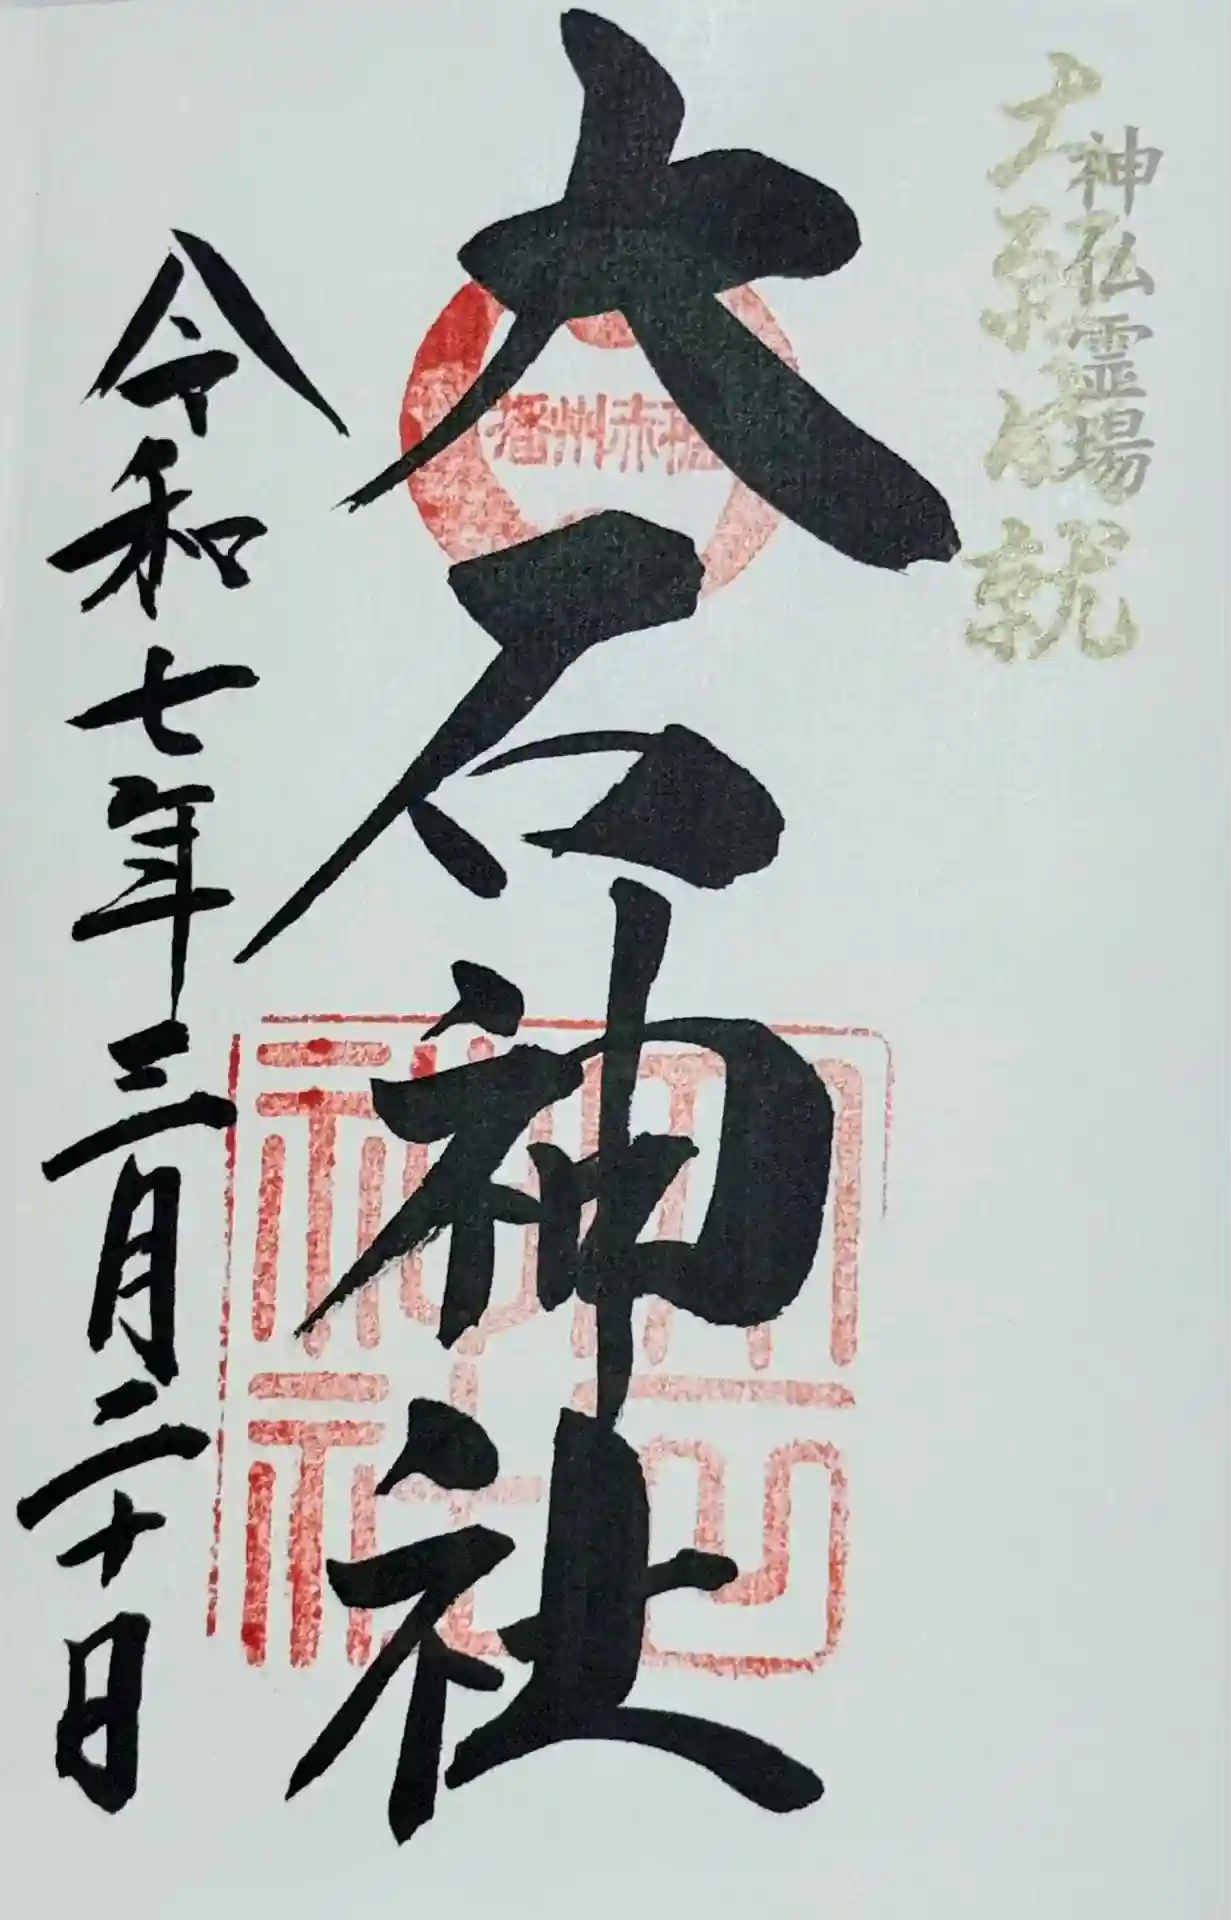 神仏霊場
大願成就
播州赤穂
大石神社
令和七年三月二十日